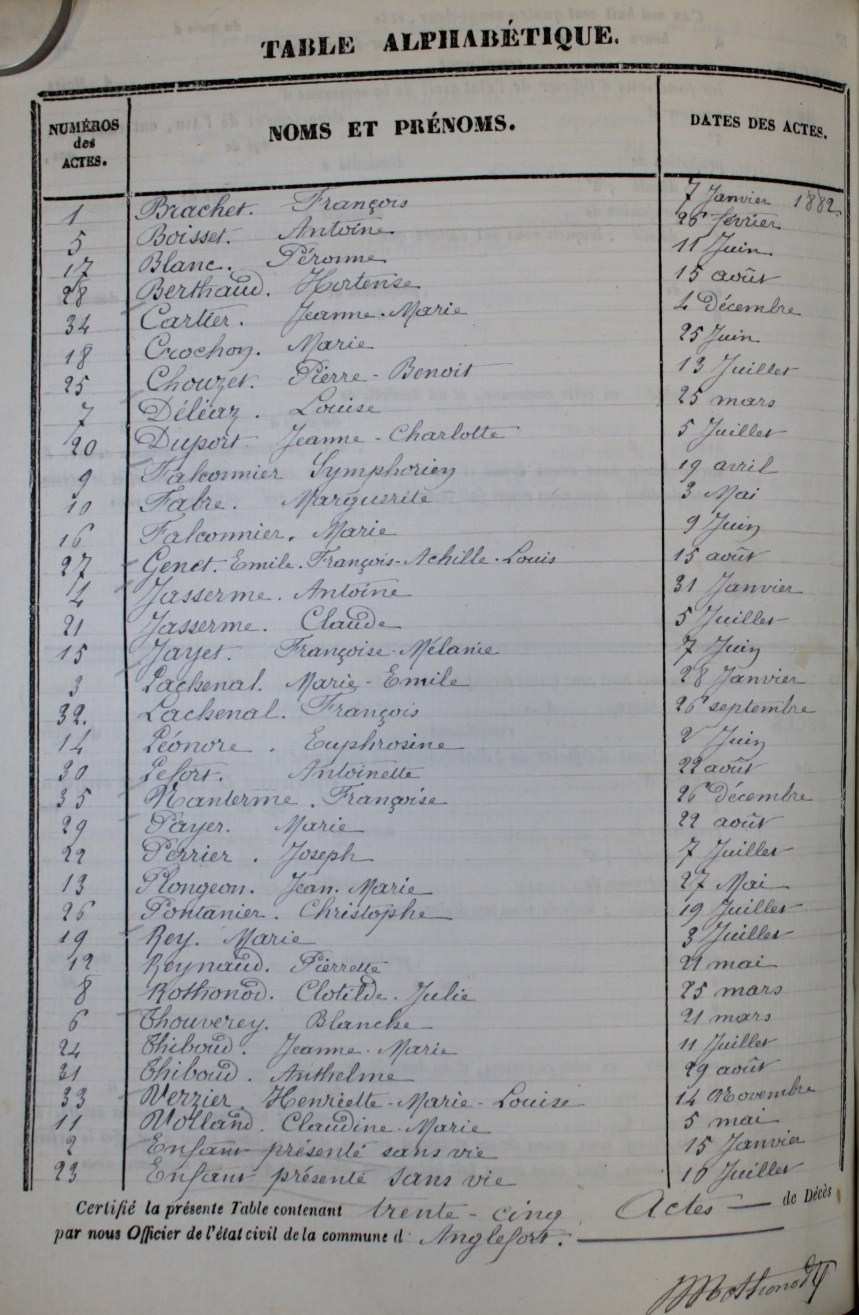 TABLE ALPHABÉTIQUE.
NUMÉROS des ACTES. NOMS ET PRÉNOMS. DATES DES ACTES.
1 Brachet. François 7 Janvier 1882
5 Boisset. Antoine 26 février
17 Blanc. Péronne 11 Juin
28 Berthaud. Hortense 15 août
34 Cartier. Jeanne-Marie 4 Décembre
18 Crochon. Marie 25 Juin
25 Chouzet. Pierre-Benoit 13 Juillet
7 Déléaz. Louise 25 mars
20 Duport Jeanne-Charlotte 5 Juillet
9 Falconnier Symphorien 19 avril
10 Fabre. Marguerite 3 Mai
16 Falconnier. Marie 9 Juin
27 Genet. Emile. François-Achille-Louis 15 août
4 Jasserme. Antoine 31 Janvier
21 Jasserme. Claude 5 Juillet
15 Jayet. Françoise-Mélanie 7 Juin
3 Lachenal. Marie-Emile 28 Janvier
32. Lachenal. François 26 septembre
14 Léonore. Euphrosine 2 Juin
30 Lefort. Antoinette 22 août
35 Nanterme. Françoise 26 Décembre
29 Payer. Marie 22 août
22 Perrier. Joseph 7 Juillet
13 Plongeon. Jean. Marie 27 Mai
26 Pontanier. Christophe 19 Juillet
19 Rey. Marie 3 Juillet
12 Reynaud. Pierrette 21 mai
8 Rothonod. Clotilde. Julie 25 mars
6 Thouverey. Blanche 21 mars
24 Thiboud. Jeanne-Marie 11 Juillet
31 Thiboud. Anthelme 29 août
33 Verzier. Henriette-Marie-Louise 14 Novembre
11 Volland. Claudine-Marie 5 mai
2 Enfant présenté sans vie 15 Janvier
23 Enfant présenté sans vie 10 Juillet
Certifié la présente Table contenant trente-cinq Actes de Décès
par nous Officier de l'état civil de la commune d Anglefort.